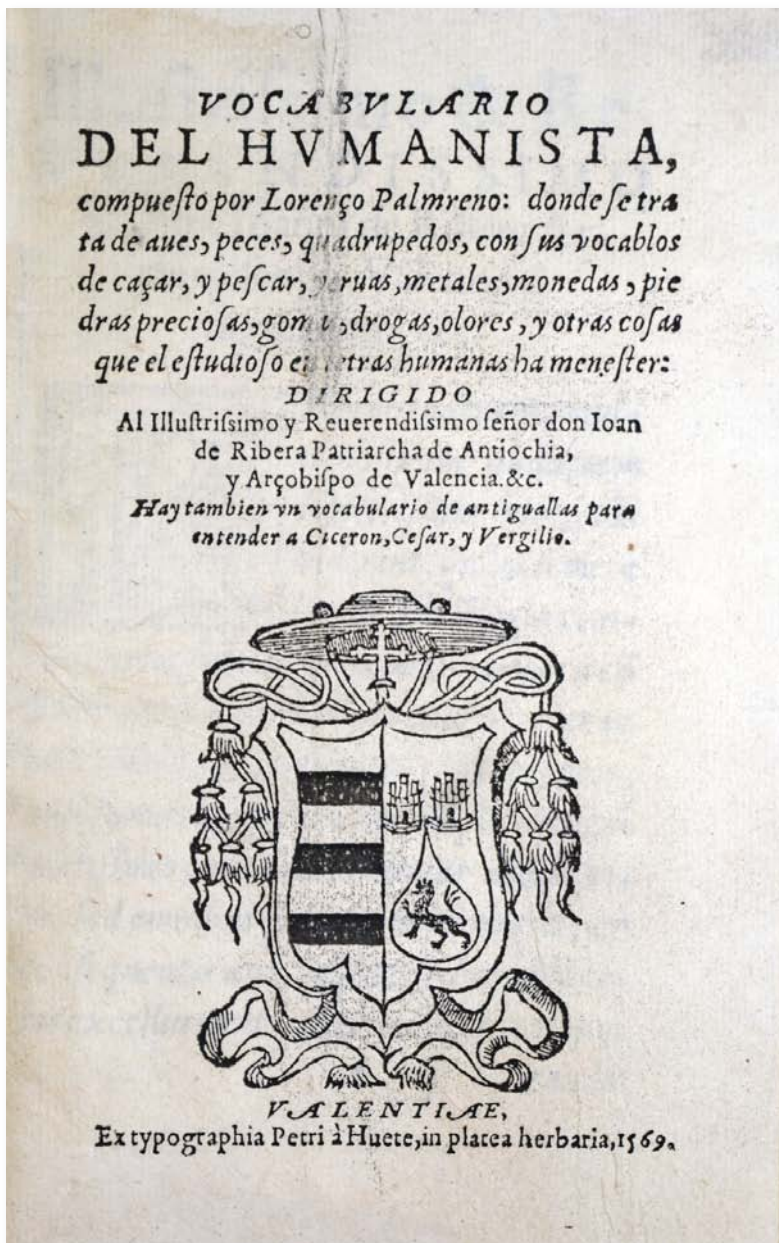 VOCABVLARIO
DEL HVMANISTA,
compueſto por Lorenço Palmreno: donde ſe tra
ta de aues, peces, quadrupedos, con ſus vocablos
de caçar, y peſcar, yeruas, metales, monedas, pie
dras precioſas, gomas, drogas, olores, y otras coſas
que el eſtudioſo en letras humanas ha meneſter:
DIRIGIDO
Al Illuſtriſsimo y Reuerendiſsimo ſeñor don Ioan
de Ribera Patriarcha de Antiochia,
y Arçobiſpo de Valencia. &c.
Hay tambien vn vocabulario de antiguallas para
entender a Ciceron, Ceſar, y Vergilio.
VALENTIAE,
Ex typographia Petri à Huete, in platea herbaria, 1569.